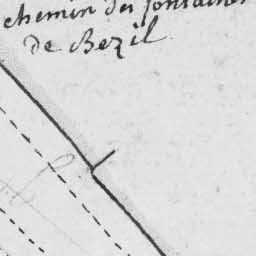 chemin des fontaines
de Bezil